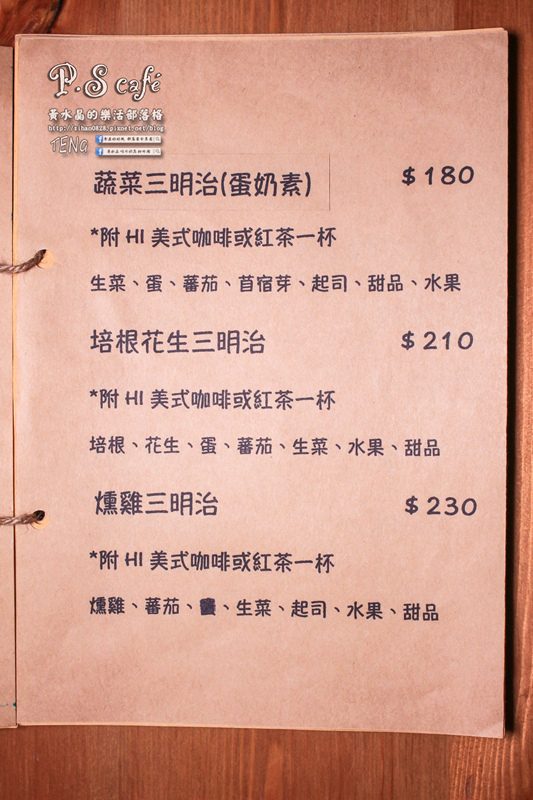 P.S café
黃水晶的樂活部落格
http://zihan0828.pixnet.net/blog
TENG
蔬菜三明治(蛋奶素) $180
*附 HI 美式咖啡或紅茶一杯
生菜、蛋、蕃茄、苜宿芽、起司、甜品、水果
培根花生三明治 $210
*附 HI 美式咖啡或紅茶一杯
培根、花生、蛋、蕃茄、生菜、水果、甜品
燻雞三明治 $230
*附 HI 美式咖啡或紅茶一杯
燻雞、蕃茄、、生菜、起司、水果、甜品